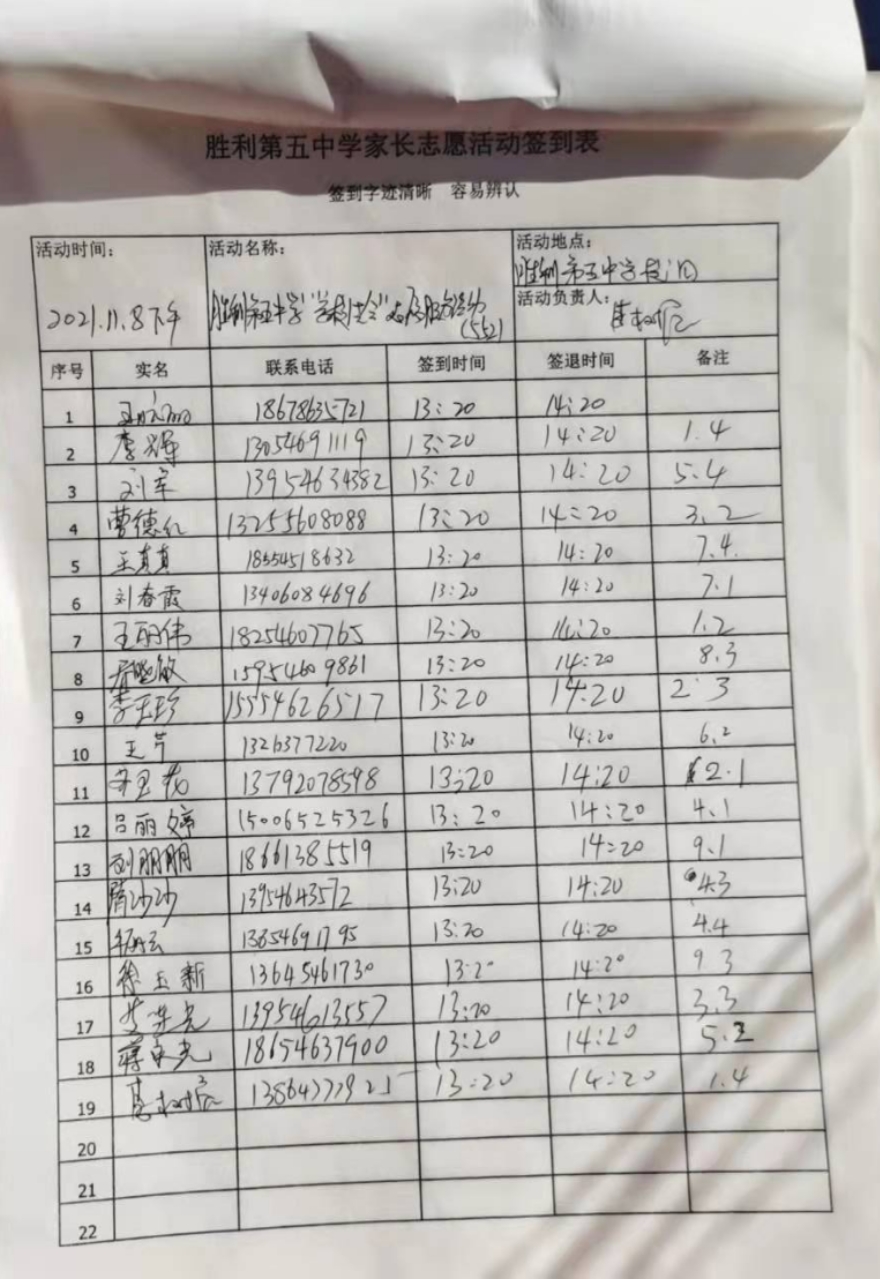 胜利第五中学家长志愿活动签到表
签到字迹清晰 容易辨认
活动时间: 活动名称: 活动地点:
胜利第五中学校门口
2021.11.8下午 胜利第五中学 志愿服务活动 活动负责人:
(552)
序号 实名 联系电话 签到时间 签退时间 备注
1 18678635721 13:20 14:20
2 李辉 13054691119 13:20 14:20 1.4
3 刘军 13954634382 13:20 14:20 5.4
4 曹德仁 13255608088 13:20 14:20 3.2
5 王真真 18554518632 13:20 14:20 7.4
6 刘春霞 13406084696 13:20 14:20 7.1
7 王丽伟 18254607765 13:20 14:20 1.2
8 15954609861 13:20 14:20 8.3
9 李玉珍 15554626517 13:20 14:20 2.3
10 王芹 1326377220 13:20 14:20 6.2
11 13792078598 13:20 14:20 2.1
12 吕丽婷 15006525326 13:20 14:20 4.1
13 刘朋朋 18661385519 13:20 14:20 9.1
14 隋沙沙 13954643572 13:20 14:20 4.3
15 13654691795 13:20 14:20 4.4
16 徐玉新 13645461730 13:20 14:20 9 3
17 13954613557 13:20 14:20 3.3
18 18654637900 13:20 14:20 5.2
19 13:20 14:20 1.4
20
21
22